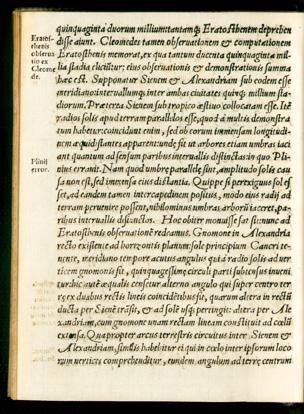 quinquaginta duorum millium tantamq; Eratosthenem deprehen
disse aiunt. Cleomedes tamen obseruationem & computationem
Eratosthenis memorat, ex qua tantum ducenta quinquaginta mil-
lia stadia elicitur: eius obseruationis & demonstrationis summa
hæc est. Supponatur Sienem & Alexandriam sub codem esse
meridiano: interuallumq; inter ambas ciuitates quinq; millium sta-
diorum. Præterea Sienem sub tropico æstiuo collocatam esse. Itē
radios solis apud terram parallelos esse, quod à multis demonstra
tum habetur: coincidunt enim, sed ob eorum immensam longitudi-
nem æquidistantes apparent: unde fit ut arbores etiam umbras iaci
ant quantum ad sensum paribus interuallis distinctas: in quo Pli-
nius errauit. Nam quod umbræ parallelæ sint, amplitudo solis cau
sa non est, sed immensa eius distantia. Quippe si perexiguus sol es
set, ad eandem tamen intercapedinem positus, modo eius radij ad
terram peruenire possent, nihilominus umbras arborū iaceret, pa-
ribus interuallis distinctas. Hoc obiter monuisse sat sit: nunc ad
Eratosthenis obseruationē redeamus. Gnomone in Alexandria
recto existente ad horizontis planum: sole principium Cancri te-
nente, meridiano tempore acutus angulus qui à radio solis ad uer
ticem gnomonis fit, quinquagesimæ circuli parti subtensus inueni
tur: huic autē æqualis censetur alterno angulo qui super centro ter
ræ ex duabus rectis lineis coincidētibus fit, quarum altera in rectū
ducta per Sienē trāsit, & ad solē usq; pertingit: altera per Ale
xandriam, cum gnomone unam rectam lineam constituit ad cœlū
extensa. Qua propter arcus terrestris circuitus inter Sienem &
Alexandriam, similis habebitur ei qui in cœlo inter ipsorum loco
rum uertices comprehenditur, eundem angulum ad terræ centrum
Eratos-
thenis
obserua
tio ex
Cleome
de.
Plinij
error.